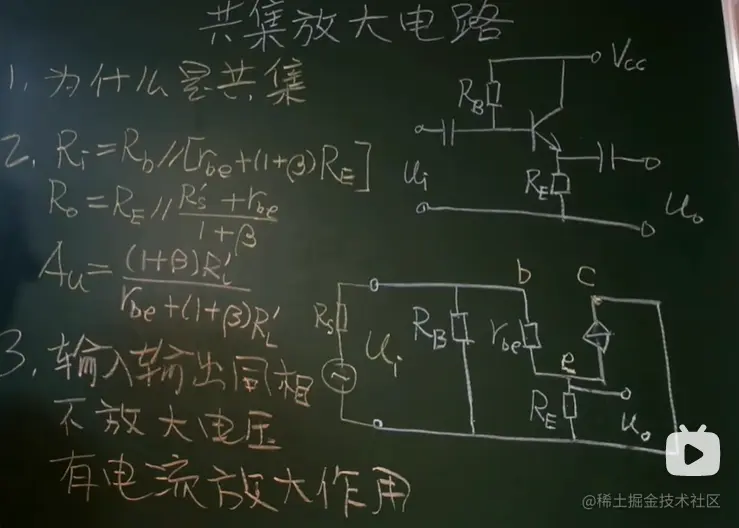 共集放大电路
1. 为什么是共集
2. Ri=Rb//[rbe+(1+β)RE]
Ro=RE//(Rs'+rbe)/(1+β)
Au=(1+β)RL'/(rbe+(1+β)RL')
3. 输入输出同相
不放大电压
有电流放大作用
Vcc
RB
Ui
RE
Uo
b
c
Rs
Ui
RB
rbe
e
RE
Uo
@稀土掘金技术社区